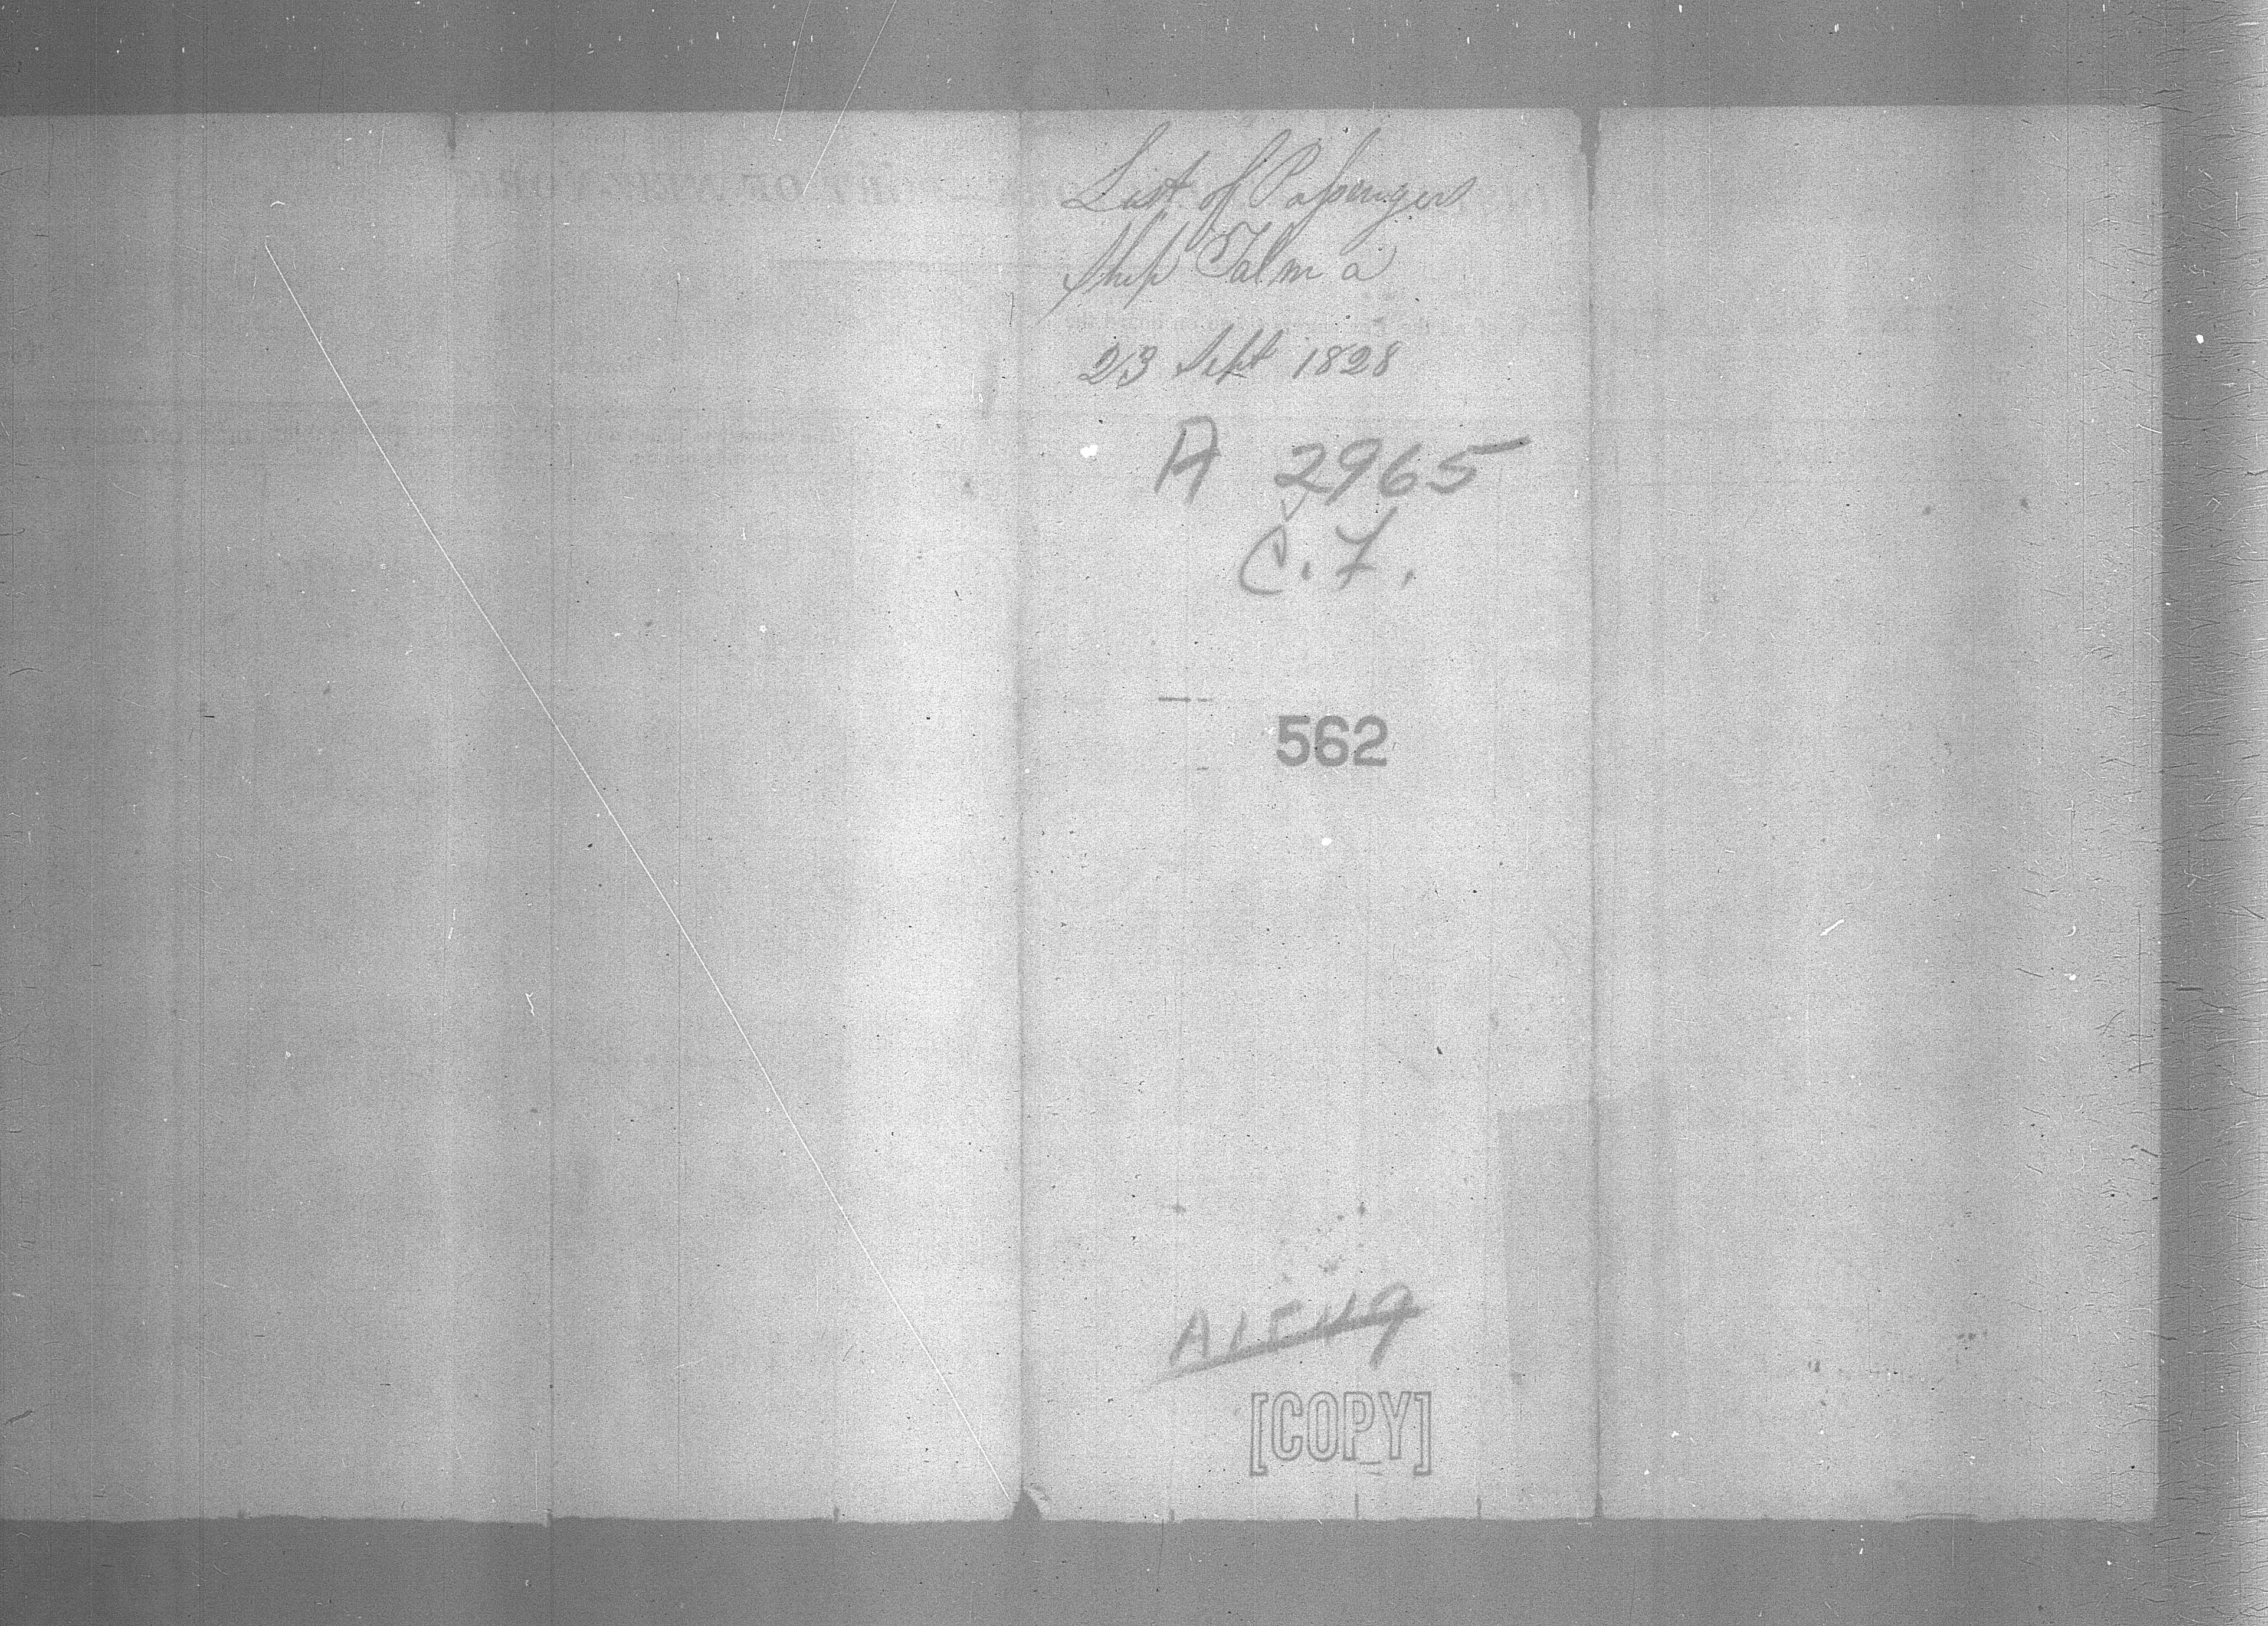 List of Passengers
Ship Talma
23 Sept 1828
A 2965
C. F.
562
[COPY]